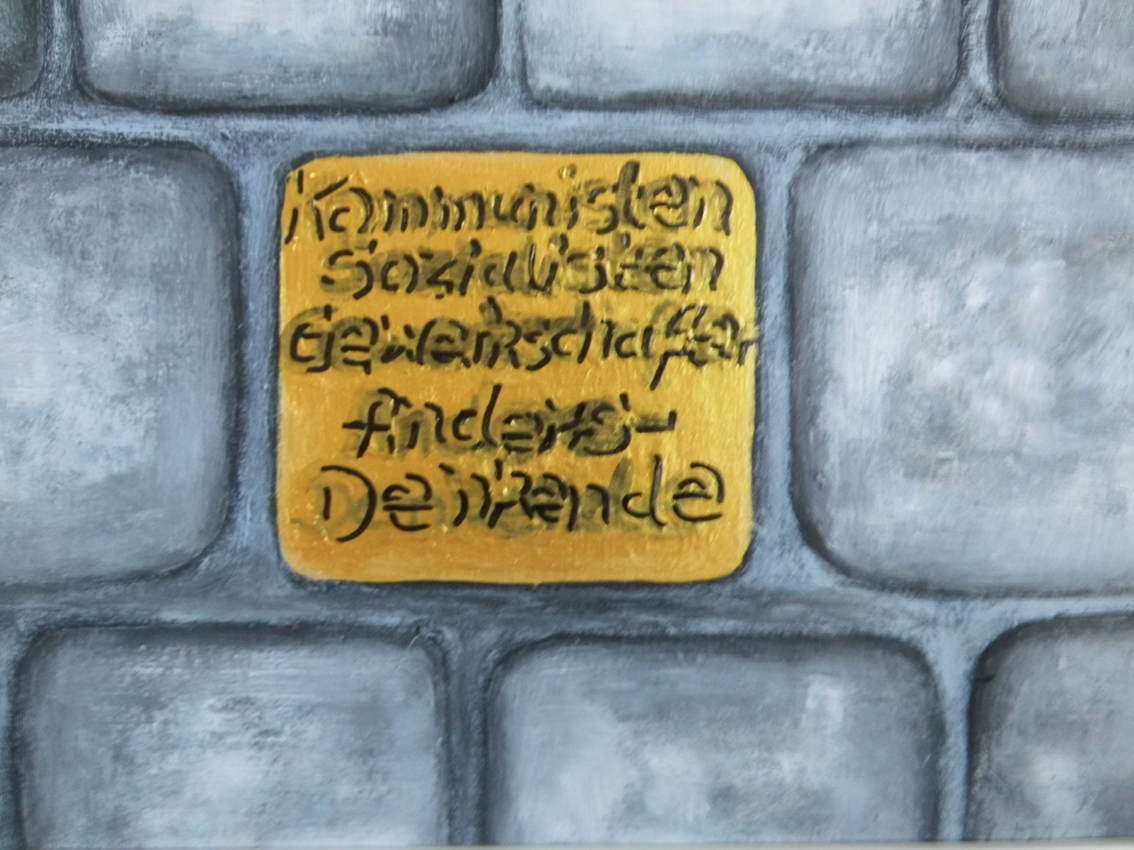 Kommunisten
Sozialisten
Gewerkschafter
Anders-
Denkende